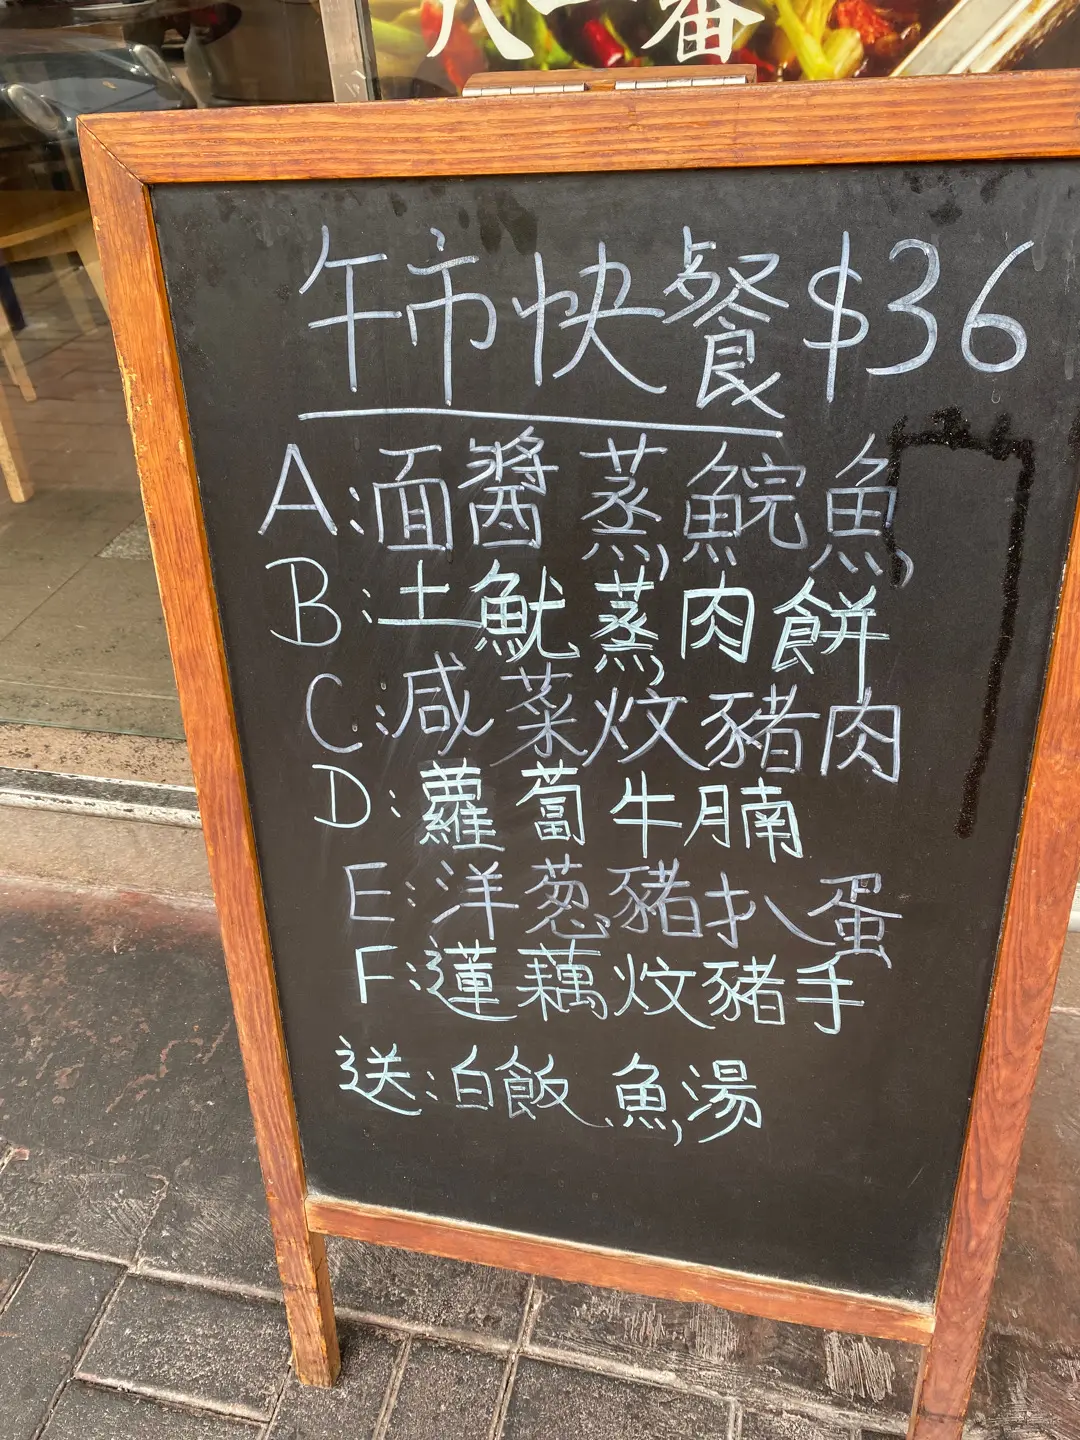 午市快餐$36
A:面醬蒸鯇魚
B:土魷蒸肉餅
C:咸菜炆豬肉
D:蘿蔔牛腩
E:洋葱豬扒蛋
F:蓮藕炆豬手
送:白飯 魚湯